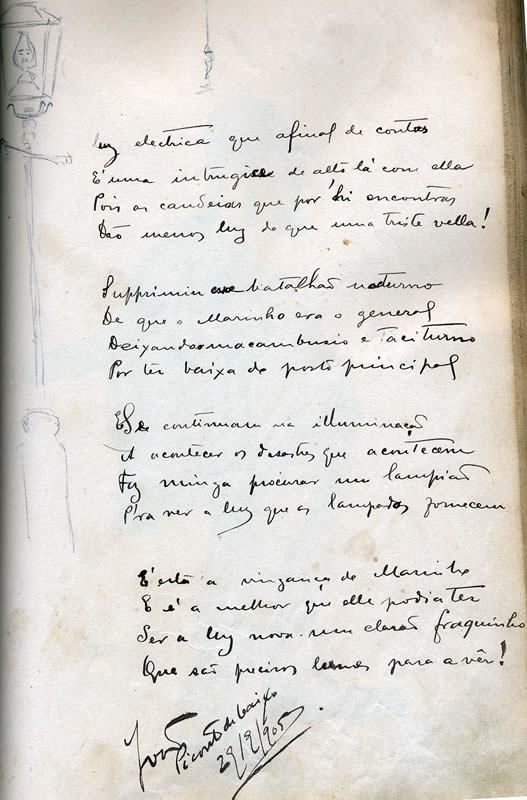 luz electrica que afinal de contas
É uma intrugice de alto lá com ella
Pois as candeias que por 'hi encontras
Dão menos luz do que uma triste vella!
Supprimiu esse batalhão nocturno
De que o Marinho era o general
Deixando-o macambusio e taciturno
Por ter baixa de posto principal
E Se continuam na illuminação
A acontecer os desastres que acontecem
Faz mingua procurar um lampião
P'ra ver a luz que as lampadas fornecem
E está a vingança do Marinho
E é a melhor que elle podia ter
Ser a luz nova um clarão fraquinho
Que são precisos lumes para a vêr!
João
Picouto de baixo
29/9/905